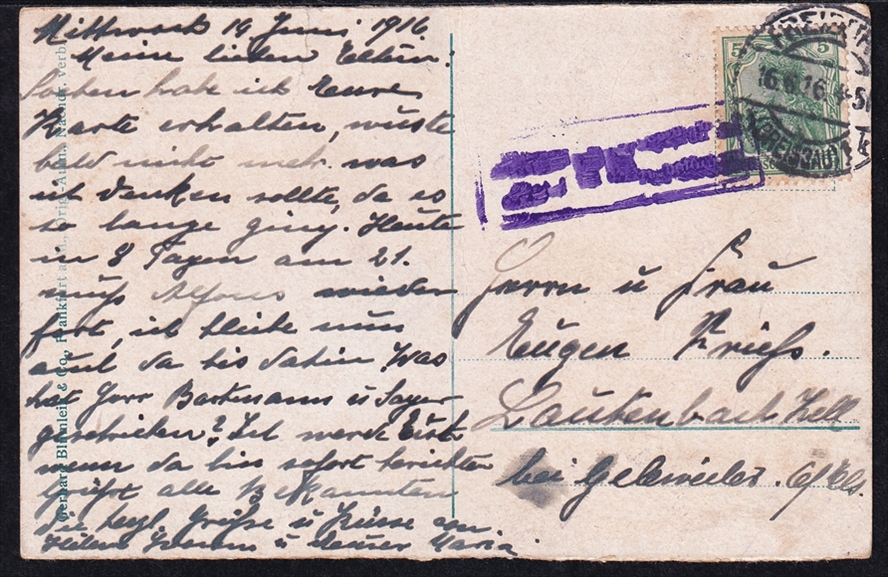 Mittwoch 14 Juni 1916.
Meine lieben Eltern!
Soeben habe ich Eure
Karte erhalten, wusste
bald nicht mehr was
ich denken sollte, da es
so lange ging. Heute
in 8 Tagen am 21.
muss Alfons wieder
fort, ich bleibe nun
auch da bis dahin. Was
hat Herr Bartmann u
geschrieben? Ich werde Euch
wenn da bin sofort berichten
Grüsst alle Bekannten
Die herzl. Grüsse u Küsse von
u Maria
Gerhard Blümlein & Co., Frankfurt a. M.
5 5
16.6.16
(BREISGAU)
Herrn u Frau
Eugen
Lautenbach Zell
bei Gebweiler. O/Els.